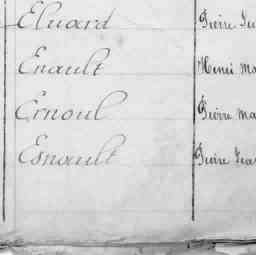 Eluard Pierre
Enault Henri
Ernoul Pierre
Esnault Pierre Jea